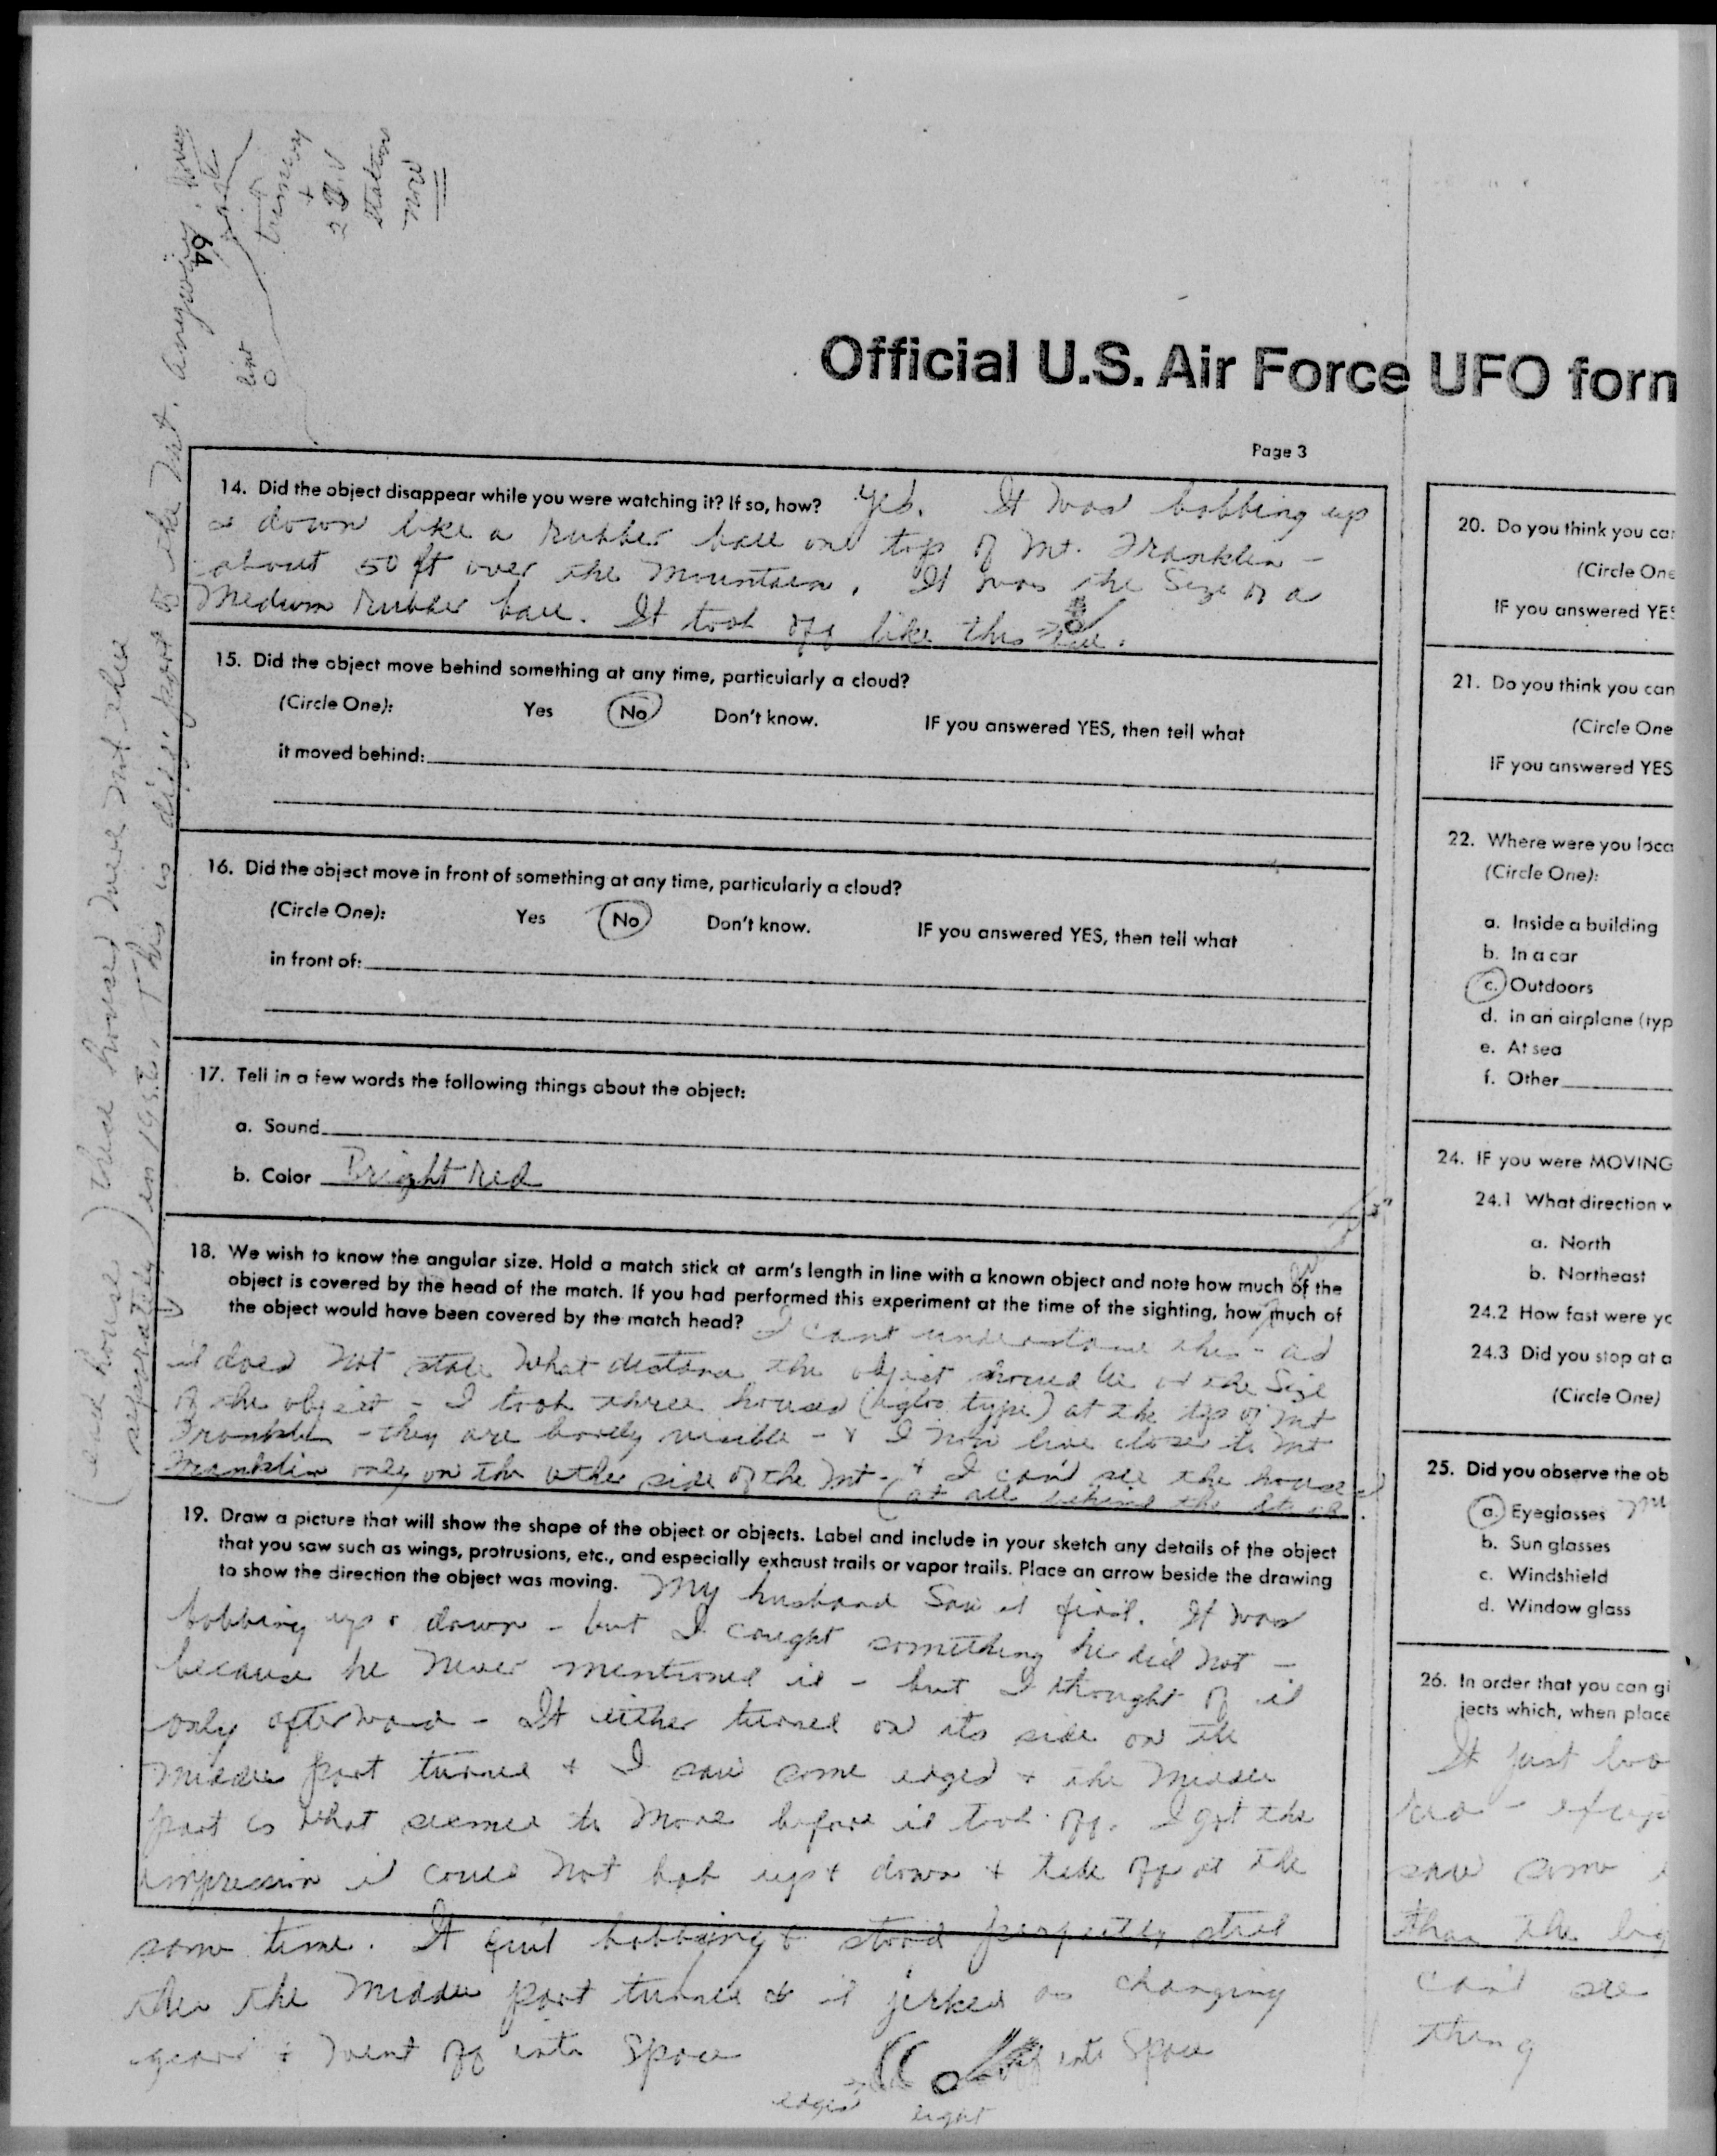 Official U.S. Air Force UFO form
Page 3
14. Did the object disappear while you were watching it? If so, how? Yes. It was bobbing up
& down like a rubber ball on top of Mt. Franklin -
about 50 ft over the mountain. It was the size of a
medium rubber ball. It took off like this
15. Did the object move behind something at any time, particularly a cloud?
(Circle One): Yes No Don't know. IF you answered YES, then tell what
it moved behind:
16. Did the object move in front of something at any time, particularly a cloud?
(Circle One): Yes No Don't know. IF you answered YES, then tell what
in front of:
17. Tell in a few words the following things about the object:
a. Sound
b. Color Bright Red
18. We wish to know the angular size. Hold a match stick at arm's length in line with a known object and note how much of the
object is covered by the head of the match. If you had performed this experiment at the time of the sighting, how much of
the object would have been covered by the match head? I cant understand this - as
it does not state what distance the object should be or the size
of the object - I took three houses (igloo type) at the top of Mt
Franklin - they are barely visible - & I now live closer to Mt
Franklin only on the other side of the Mt - & I can't see the houses
at all behind the
19. Draw a picture that will show the shape of the object or objects. Label and include in your sketch any details of the object
that you saw such as wings, protrusions, etc., and especially exhaust trails or vapor trails. Place an arrow beside the drawing
to show the direction the object was moving. My husband saw it first. It was
bobbing up & down - but I caught something he did not -
because he never mentioned it - but I thought of it
only afterward - It either turned on its side or the
middle part turned & I saw some edges & the middle
part is what seemed to move before it took off. I got the
impression it could not bob up & down & take off at the
same time. It quit bobbing & stood perfectly still
then the middle part turned & it jerked as changing
gears & went off into space
off into space
edges
light
(each house separately) these houses were not there
in 1952. This is different part of the Mt. anyway,
64
tramway
+
2 T.V
station
now
20. Do you think you can
(Circle One
IF you answered YES
21. Do you think you can
(Circle One
IF you answered YES
22. Where were you loca
(Circle One):
a. Inside a building
b. In a car
c. Outdoors
d. In an airplane (typ
e. At sea
f. Other
24. IF you were MOVING
24.1 What direction w
a. North
b. Northeast
24.2 How fast were yo
24.3 Did you stop at a
(Circle One)
25. Did you observe the ob
a. Eyeglasses
b. Sun glasses
c. Windshield
d. Window glass
26. In order that you can gi
jects which, when place
It just loo
red - except
saw some
than the big
can't see
thing